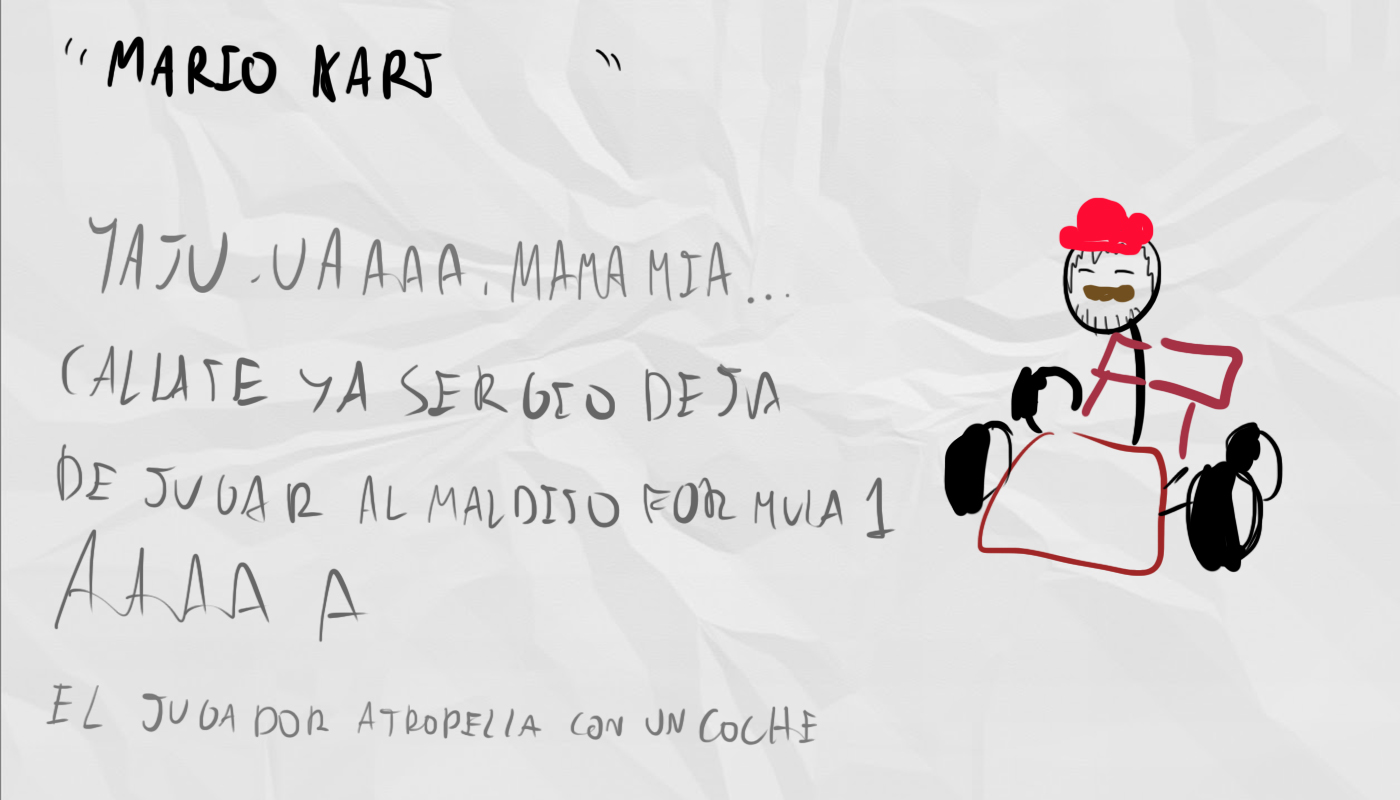 "MARIO KART"
YAJU. UAAAA. MAMA MIA...
CALLATE YA SERGIO DEJA
DE JUGAR AL MALDITO FORMULA 1
AAAA A
EL JUGADOR ATROPELLA CON UN COCHE